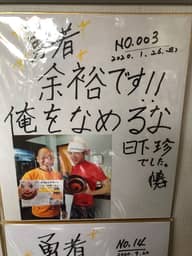 勇者
NO.003
2020.1.26.(日)
余裕です!!
俺をなめるな
日下 珍
でした。
勇者
NO.14.